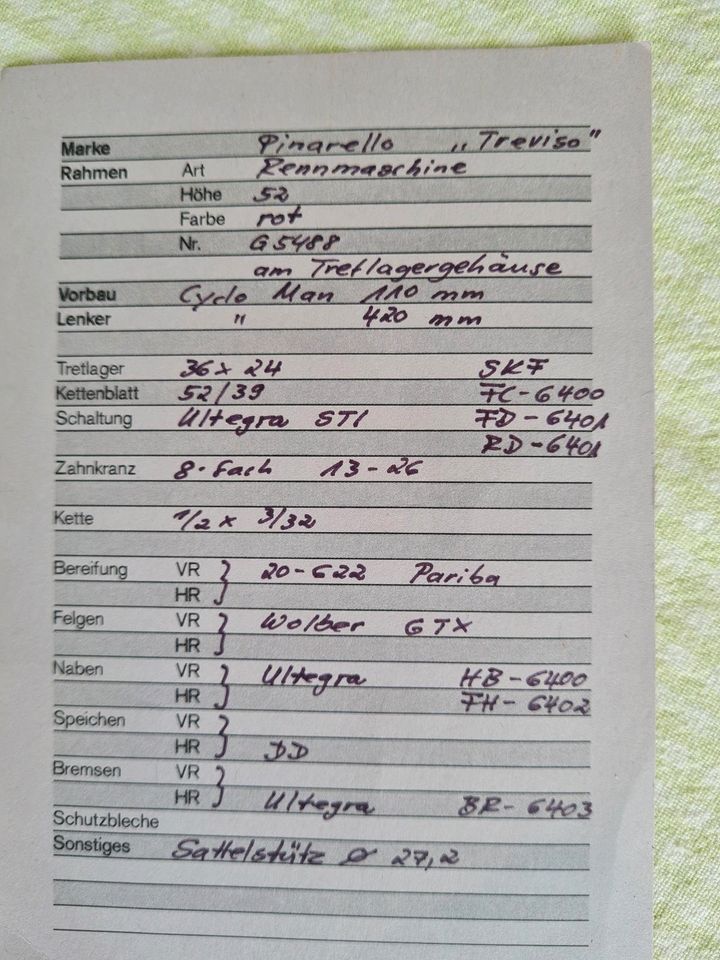 Marke Pinarello „Treviso"
Rahmen Art Rennmaschine
Höhe 52
Farbe rot
Nr. G5488
am Tretlagergehäuse
Vorbau Cyclo Man 110 mm
Lenker " 420 mm
Tretlager 36 x 24 SKF
Kettenblatt 52/39 FC-6400
Schaltung Ultegra STI FD-6401
RD-6401
Zahnkranz 8-fach 13-26
Kette 1/2 x 3/32
Bereifung VR } 20-622 Pariba
HR
Felgen VR } Wolber GTX
HR
Naben VR } Ultegra HB-6400
HR FH-6402
Speichen VR }
HR DD
Bremsen VR }
HR Ultegra BR-6403
Schutzbleche
Sonstiges Sattelstütz ø 27,2